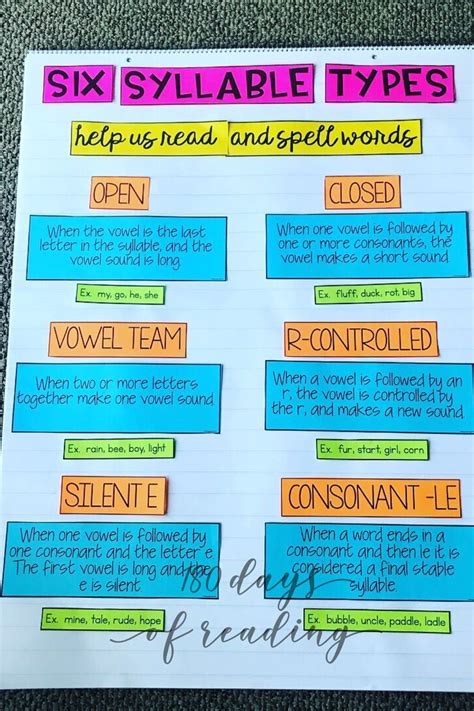 SIX SYLLABLE TYPES
help us read and spell words
OPEN
When the vowel is the last
letter in the syllable, and the
vowel sound is long
Ex. my, go, he, she
CLOSED
When one vowel is followed by
one or more consonants, the
vowel makes a short sound
Ex. fluff, duck, rot, big
VOWEL TEAM
When two or more letters
together make one vowel sound
Ex. rain, bee, boy, light
R-CONTROLLED
When a vowel is followed by an
r, the vowel is controlled by
the r, and makes a new sound.
Ex. fur, start, girl, corn
SILENT E
When one vowel is followed by
one consonant and the letter e
The first vowel is long and the
e is silent
Ex. mine, tale, rude, hope
CONSONANT -LE
When a word ends in a
consonant and then le it is
considered a final stable
syllable.
Ex. bubble, uncle, paddle, ladle
180 days
of reading